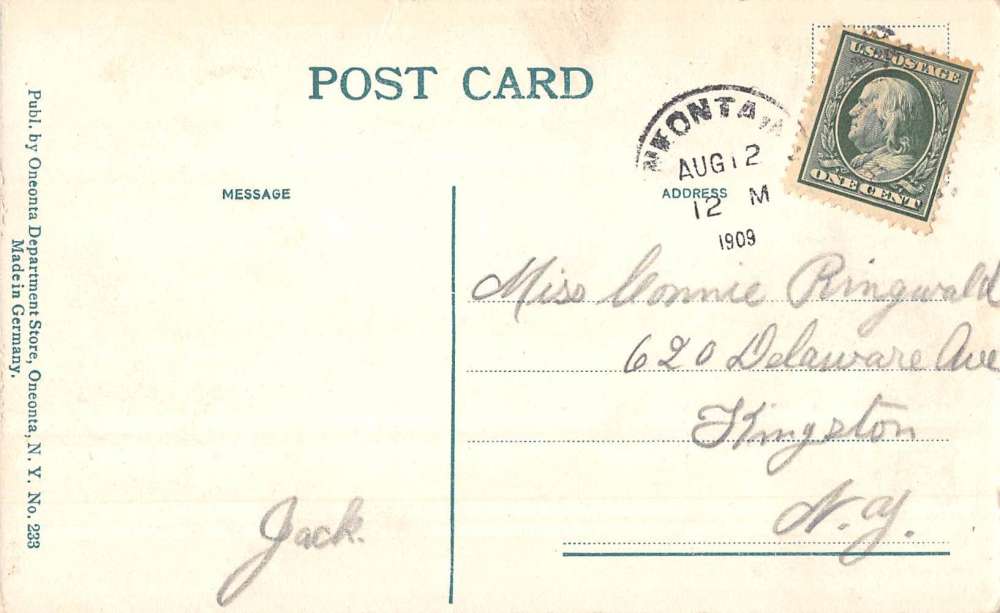 POST CARD
ONEONTA
AUG 12
12 M
1909
U.S. POSTAGE
ONE CENT
MESSAGE
ADDRESS
Miss Connie Ringwald
620 Delaware Ave
Kingston
N.Y.
Jack.
Publ. by Oneonta Department Store, Oneonta, N. Y. No. 233
Made in Germany.